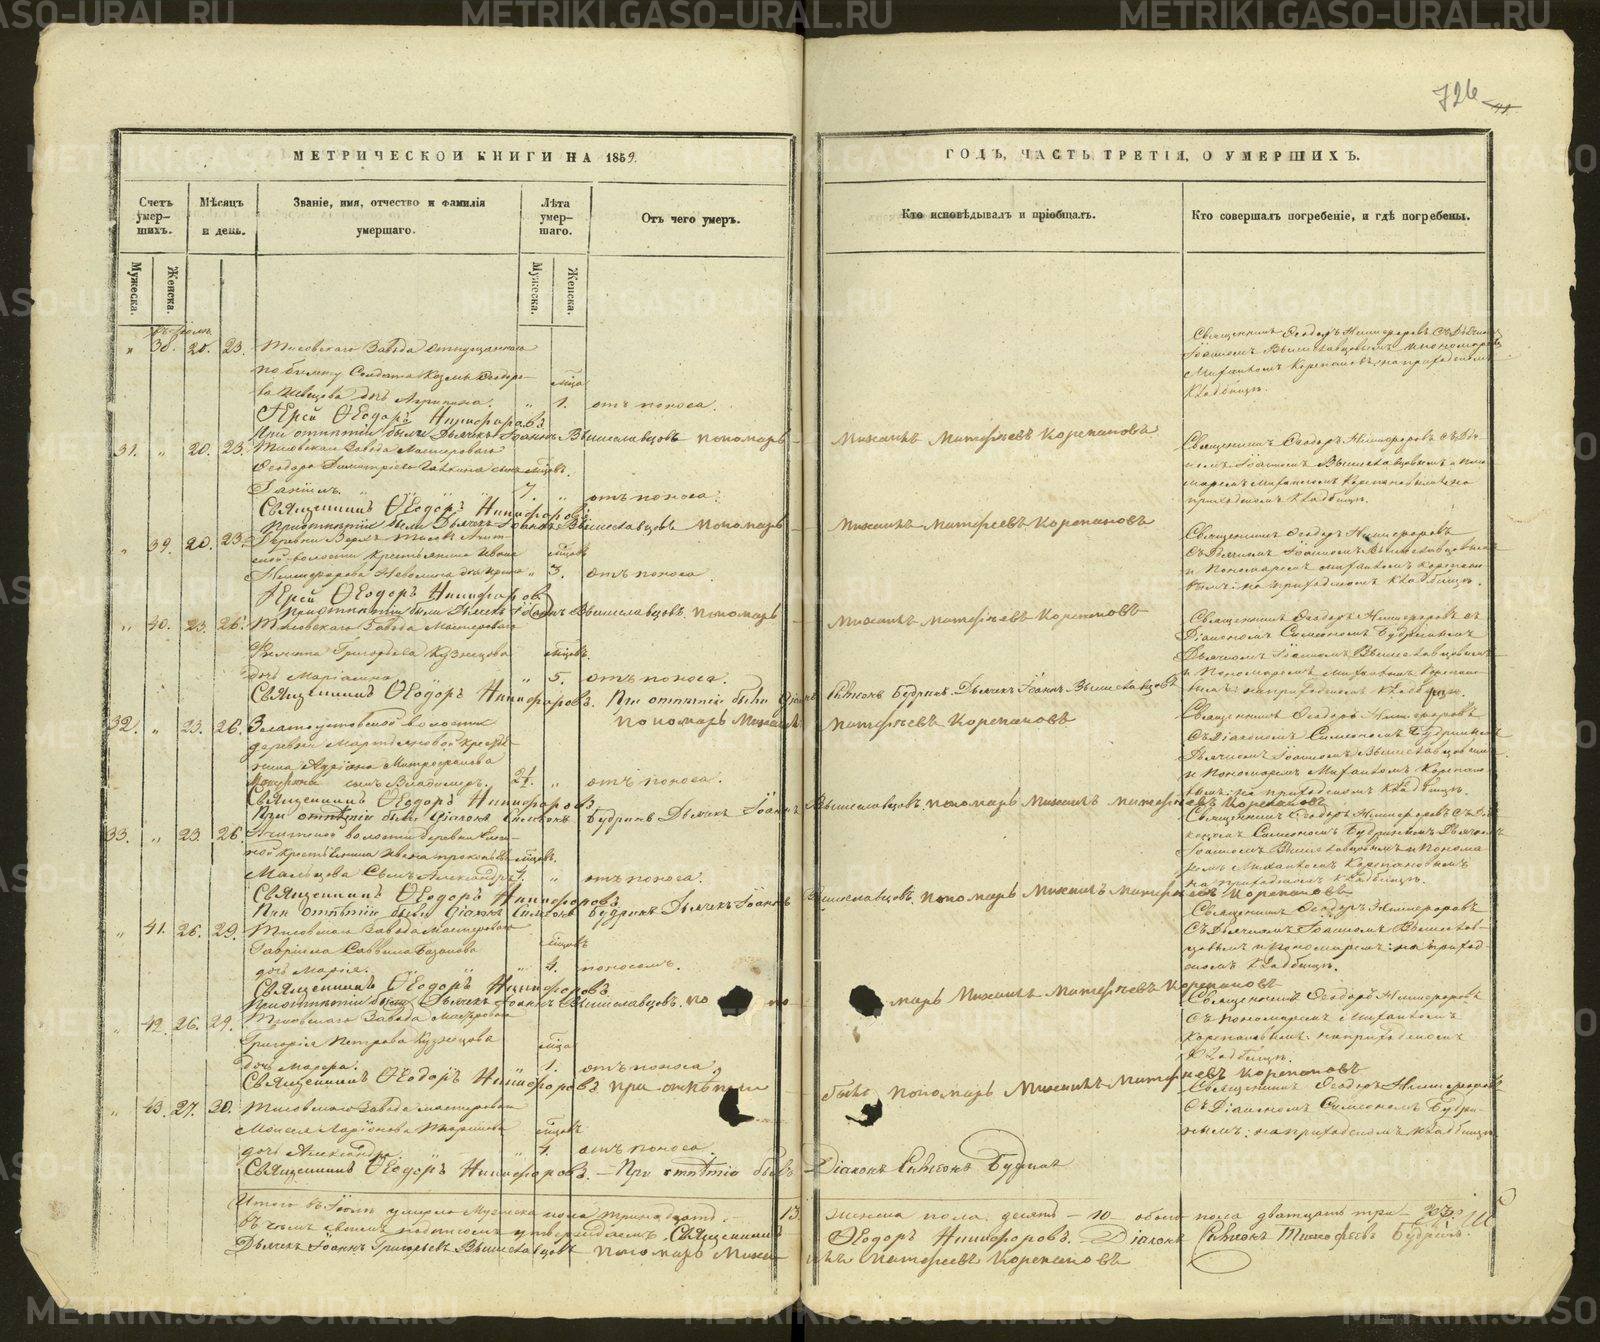 726
МЕТРИЧЕСКОЙ КНИГИ НА 1859.
ГОДЪ, ЧАСТЬ ТРЕТІЯ, О УМЕРШИХЪ.
Счетъ умер-
шихъ.
Мѣсяцъ
и день.
Званіе, имя, отчество и фамилія
умершаго.
Лѣта
умер-
шаго.
Отъ чего умеръ.
Кто исповѣдывалъ и пріобщалъ.
Кто совершалъ погребеніе, и гдѣ погребены.
Мужеска.
Женска.
Мужеска.
Женска.
„ 38. 20. 23. Тисовскаго Завода
по билету Солдата Козмы Ѳеодоро-
ва Швецова дочь Агрипина. „ 1. отъ поноса.
Іерей Ѳеодоръ Никифоровъ
При отпѣтіи были Дьячекъ Іоаннъ Вышеславцовъ пономарь Михаилъ Матѳеевъ Корепановъ
31. „ 20. 23. Тисовскаго Завода Мастероваго
Ѳеодора Димитріева сынъ мѣсцов.
7. „ отъ поноса.
Священникъ Ѳеодоръ Никифоровъ
При отпѣтіи были Дьячекъ Іоаннъ Вышеславцовъ пономарь Михаилъ Матѳеевъ Корепановъ
„ 39. 20. 23. Деревни Верхъ Тисы Ачит-
ской волости крестьянина Ивана
Никифорова „ 3. отъ поноса.
Іерей Ѳеодоръ Никифоровъ
При отпѣтіи были Дьячекъ Іоаннъ Вышеславцовъ пономарь Михаилъ Матѳеевъ Корепановъ
„ 40. 23. 26. Тисовскаго Завода Мастероваго
Филипа Григорьева Кузнецова
дочь Маріамна „ 5. отъ поноса.
Священникъ Ѳеодоръ Никифоровъ. При отпѣтіи были Діаконъ Симеонъ Будринъ Дьячекъ Іоаннъ Вышеславцовъ
пономарь Михаилъ Матѳеевъ Корепановъ
32. „ 23. 26. Златоустовской волости
деревни Мартьяновой кресть-
янина Адріана Митрофанова
сынъ Владимеръ. „ отъ поноса.
Священникъ Ѳеодоръ Никифоровъ
При отпѣтіи были Діаконъ Симеонъ Будринъ Дьячекъ Іоаннъ Вышеславцовъ пономарь Михаилъ Матѳеевъ Корепановъ
33. „ 23. 26. Ачитской волости деревни
крестьянина Ивана Прокопьева
Мальцова Сынъ Александръ „ отъ поноса.
Священникъ Ѳеодоръ Никифоровъ
При отпѣтіи были Діаконъ Симеонъ Будринъ Дьячекъ Іоаннъ Вышеславцовъ пономарь Михаилъ Матѳеевъ Корепановъ
„ 41. 26. 29. Тисовскаго Завода мастероваго
Гавріила Саввина
дочь Марія. „ 4. поносомъ.
Священникъ Ѳеодоръ Никифоровъ
При отпѣтіи были Дьячекъ Іоаннъ Вышеславцовъ по марь Михаилъ Матѳеевъ Корепановъ
„ 42. 26. 29. Тисовскаго Завода Мастероваго
Григорія Петрова Кузнецова
дочь Мавра. 1. отъ поноса,
Священникъ Ѳеодоръ Никифоровъ при отпѣтіи былъ пономарь Михаилъ Матѳеевъ Корепановъ
„ 43. 27. 30. Тисовскаго Завода мастероваго
Моисея Ларіонова
дочь Александра. „ 4. отъ поноса.
Священникъ Ѳеодоръ Никифоровъ. — При отпѣтіи былъ Діаконъ Симеонъ Будринъ
Священникъ Ѳеодоръ Никифоровъ съ Дьячкомъ
Іоанномъ Вышеславцовымъ и пономаремъ
Михаиломъ на приходскомъ
Кладбищѣ.
Священникъ Ѳеодоръ Никифоровъ съ Дья-
чкомъ Іоанномъ Вышеславцовымъ и поно-
маремъ Михаиломъ на
приходскомъ Кладбищѣ.
Священникъ Ѳеодоръ Никифоровъ
съ Дьячкомъ Іоанномъ Вышеславцовымъ
и Пономаремъ Михаиломъ Корепано-
вымъ: на приходскомъ Кладбищѣ.
Священникъ Ѳеодоръ Никифоровъ съ
Діакономъ Симеономъ Будринымъ
Дьячкомъ Іоанномъ Вышеславцовымъ
и Пономаремъ Михаиломъ Корепано-
вымъ: на приходскомъ Кладбищѣ.
Священникъ Ѳеодоръ Никифоровъ
съ Діакономъ Симеономъ Будринымъ
Дьячкомъ Іоанномъ Вышеславцовымъ
и Пономаремъ Михаиломъ Корепано-
вымъ: на приходскомъ Кладбищѣ.
Священникъ Ѳеодоръ Никифоровъ съ Діа-
кономъ Симеономъ Будринымъ Дьячкомъ
Іоанномъ Вышеславцовымъ и Понома-
ремъ Михаиломъ Корепановымъ
на приходскомъ Кладбищѣ.
Священникъ Ѳеодоръ Никифоровъ
съ Дьячкомъ Іоанномъ Вышеслав-
цовымъ и Пономаремъ: на приход-
скомъ Кладбищѣ.
Священникъ Ѳеодоръ Никифоровъ
съ Пономаремъ Михаиломъ
Корепановымъ: на приходскомъ
Кладбищѣ.
Священникъ Ѳеодоръ Никифоровъ
съ Діакономъ Симеономъ Будри-
нымъ: на приходскомъ Кладбищѣ.
Итого въ Іюлѣ умерло Мужеска пола тринадцать. 13. женска пола десять — 10 обоего пола двадцать три — 23.
въ чемъ своимъ подписомъ утверждаемъ. Священникъ Ѳеодоръ Никифоровъ. Діаконъ Симеонъ Тимофеевъ Будринъ.
Дьячекъ Іоаннъ Григорьевъ Вышеславцовъ пономарь Михаилъ Матѳеевъ Корепановъ
METRIKI.GASO-URAL.RU